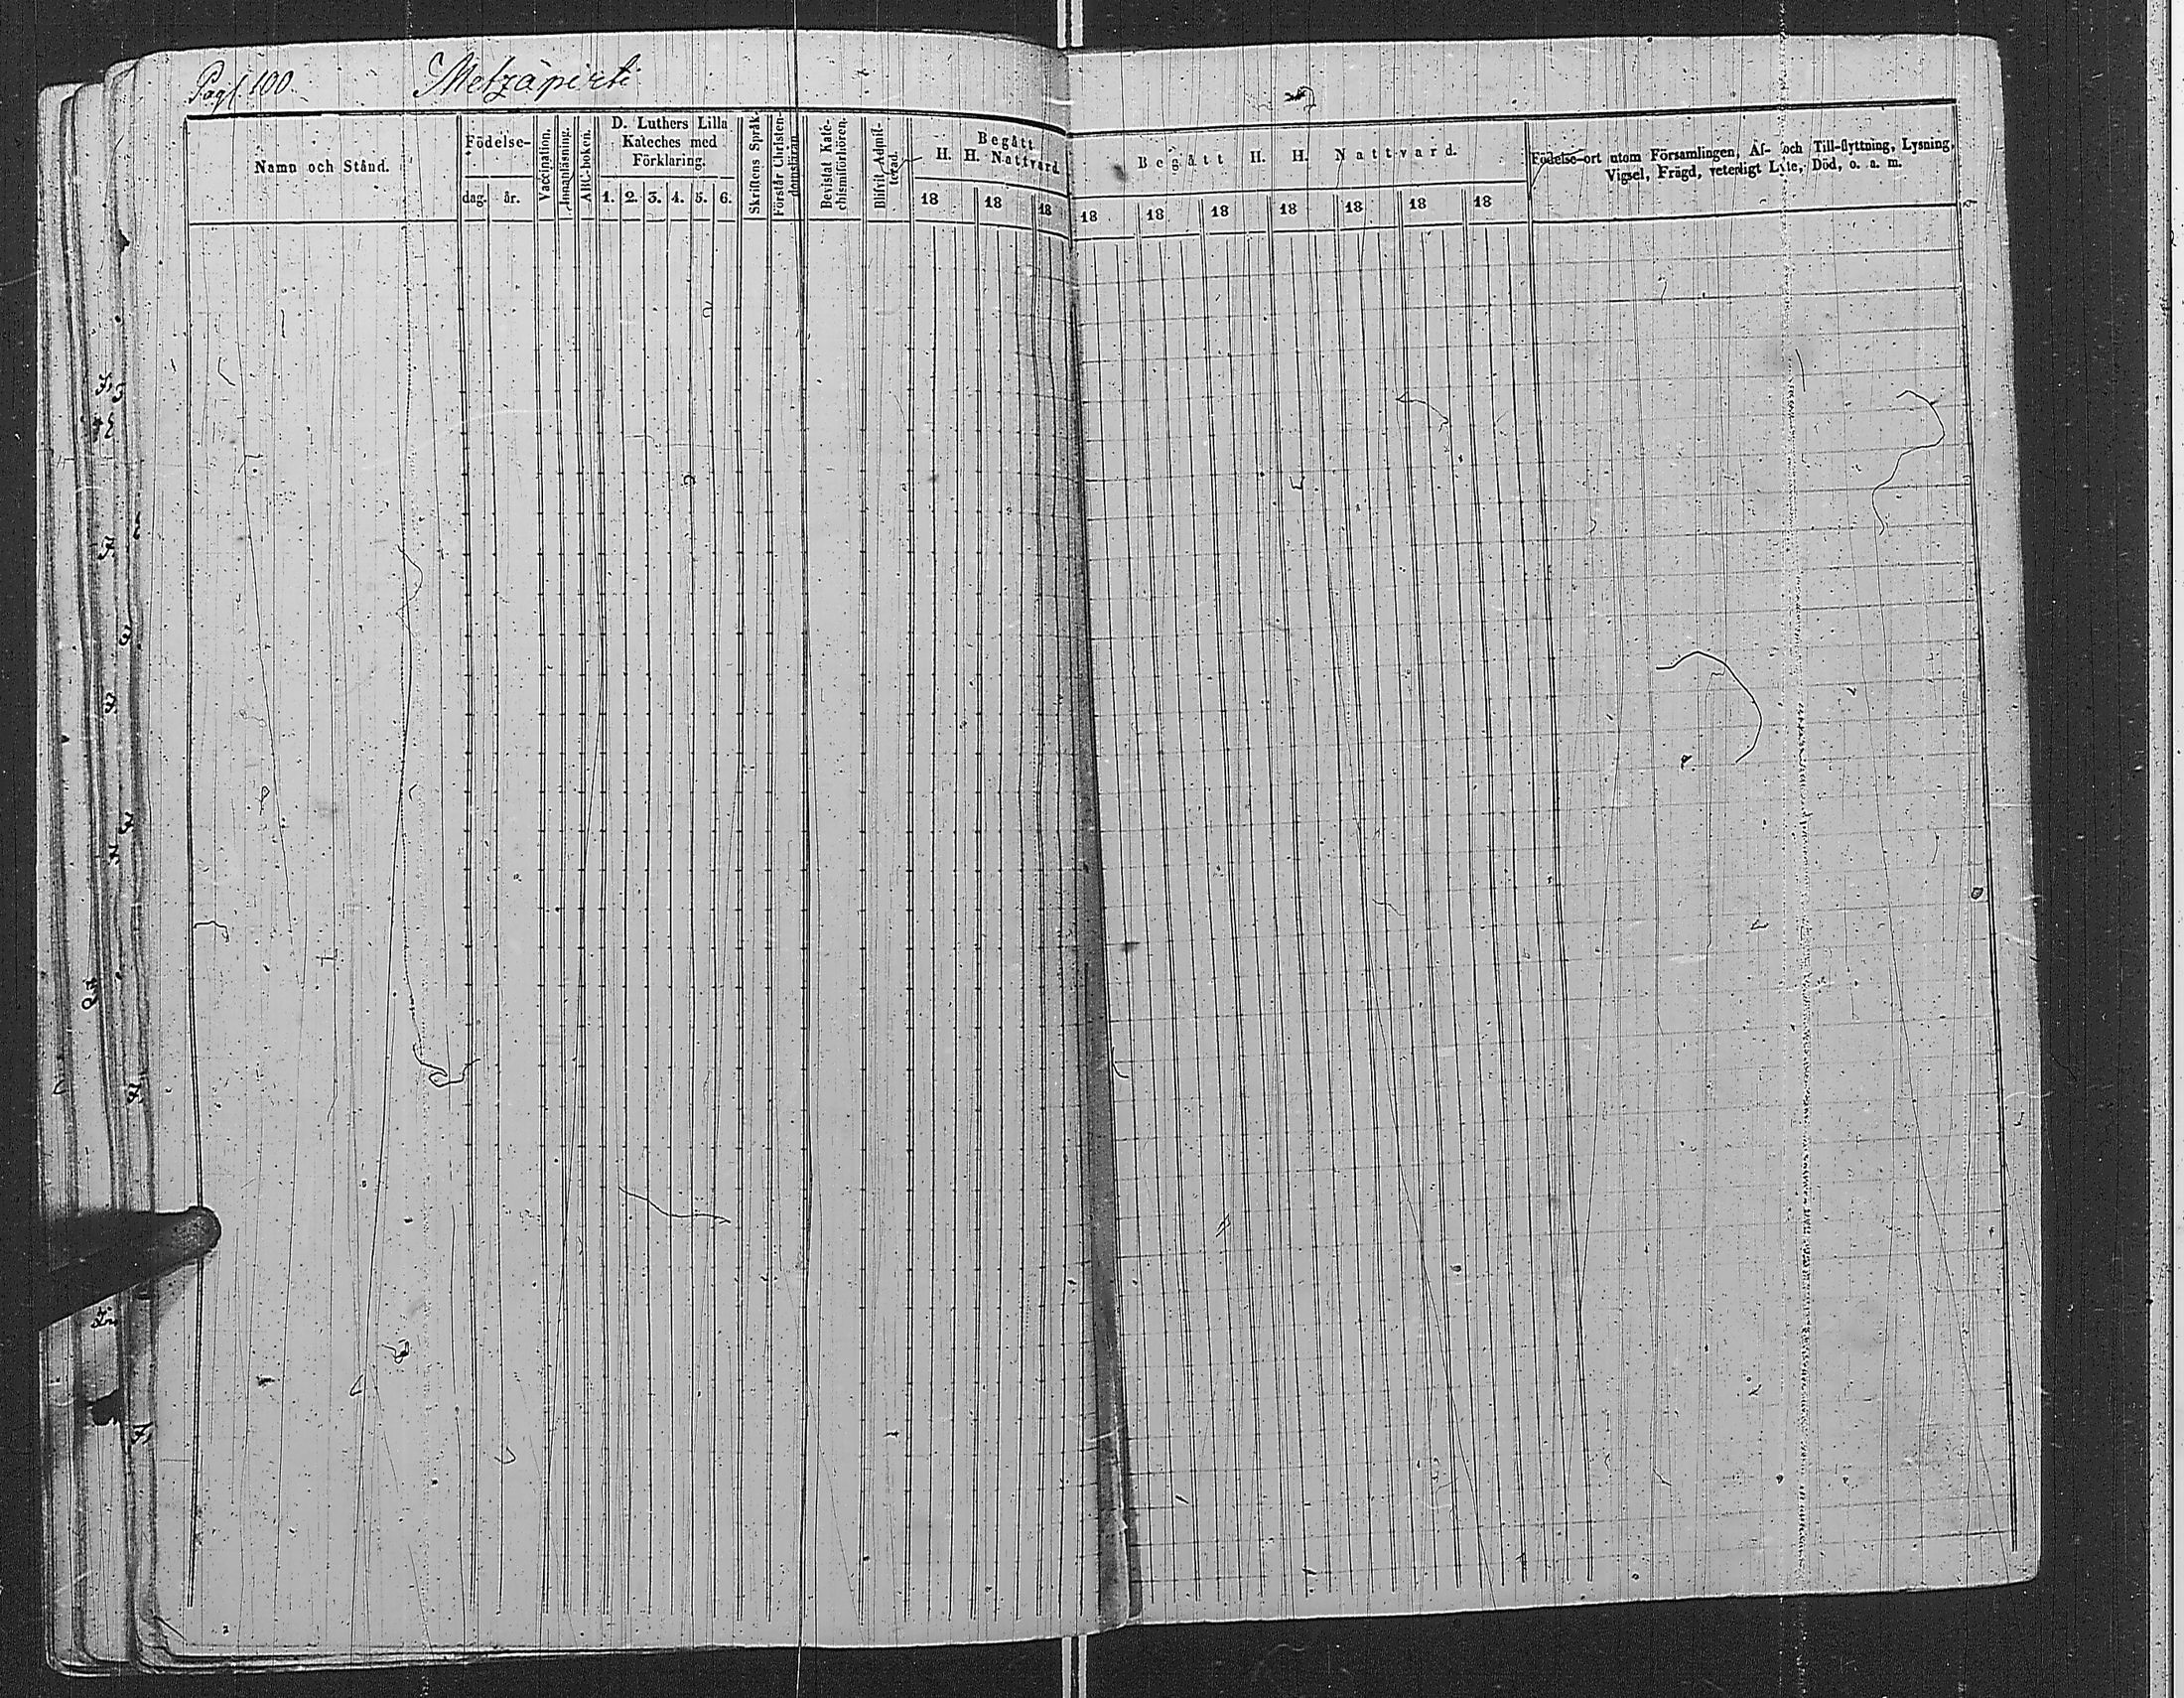 Pag. 100. Metzäpirti
Namn och Stånd.
Födelse-
dag. år.
Vaccination.
Innanläsning.
ABC-boken.
D. Luthers Lilla
Kateches med
Förklaring.
1. 2. 3. 4. 5. 6.
Skriftens Språk.
Förstår Christen-
domsläran.
Bevistat Kate-
chismiförhören.
Blifvit Admit-
terad.
Begått
H. H. Nattvard.
18 18 18
Begått H. H. Nattvard.
18 18 18 18 18 18 18
Födelse-ort utom Församlingen, Af- och Till-flyttning, Lysning,
Vigsel, Frägd, veterligt Lyte, Död, o. a. m.